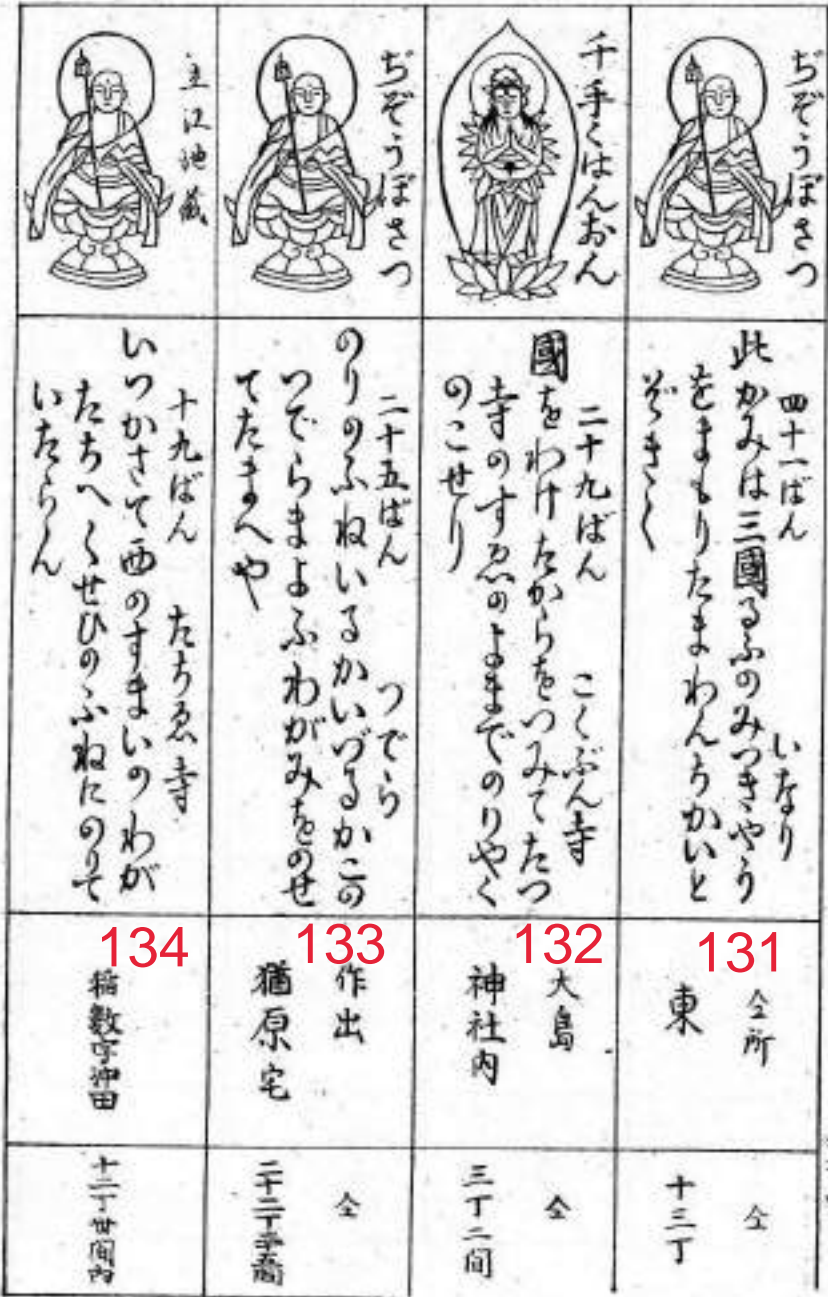 ぢぞうぼさつ
四十一ばん　いなり
此かみは三國るふのみつきやう
をまもりたまわんちかいと
ぞきく
131
仝所
東
仝
十三丁
千手くはんおん
二十九ばん　こくぶん寺
國をわけたからをつみてたつ
寺のすゑのよまでのりやく
のこせり
132
大島
神社内
仝
三丁二间
ぢぞうぼさつ
二十五ばん　つでら
のりのふねいるかいづるかこの
つでらまよふわがみをのせ
てたまへや
133
作出
猶原宅
仝
立江地蔵
十九ばん　たちゑ寺
いつかさて西のすまいのわが
たちへくせひのふねにのりて
いたらん
134
稲数字沖田